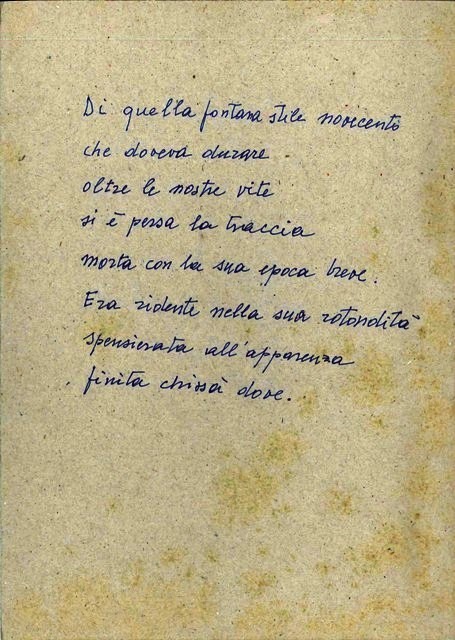 Di quella fontana stile novecento
che doveva durare
oltre le nostre vite
si è persa la traccia
morta con la sua epoca breve.
Era ridente nella sua rotondità
spensierata all'apparenza
finita chissà dove.